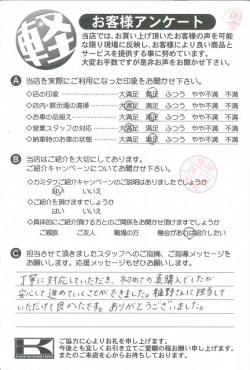 軽
お客様アンケート
当店では、お買い上げ頂いたお客様の声を可能
な限り現場に反映し、お客様により良い商品と
サービスを提供する事に努めています。
大変お手数ですが是非お声をお聞かせ下さい。
A 当店を実際にご利用になった印象をお聞かせ下さい。
◇店の印象 大満足 満足 ふつう やや不満 不満
◇店内・展示場の清掃 大満足 満足 ふつう やや不満 不満
◇お車の品揃え 大満足 満足 ふつう やや不満 不満
◇営業スタッフの対応 大満足 満足 ふつう やや不満 不満
◇納車時のお車の状態 大満足 満足 ふつう やや不満 不満
B 当店はご紹介を大切にしてあります。
ご紹介キャンペーンについてお聞かせ下さい。
◇カミタケご紹介キャンペーンのご説明はありましたでしょうか
はい いいえ
◇ご紹介を頂けますでしょうか
はい いいえ
◇具体的にご紹介頂ける方とのご関係をお聞かせ頂けますでしょうか
ご親族 ご友人 職場の方 機会があれば紹介したい
C 担当させて頂きましたスタッフへのご指摘、ご指導メッセージを
お願いします。応援メッセージもぜひお願いします。
丁寧に対応していただき、初めての車購入でしたが
安心して進めていくことができました。植野さんに担当して
いただけて良かったです。ありがとうございました。
K
ご協力に心よりお礼を申し上げます。
今後とも宜しくお引き立てご愛顧の程お願い申し上げます。
またのご来店を心からお待ちしております。